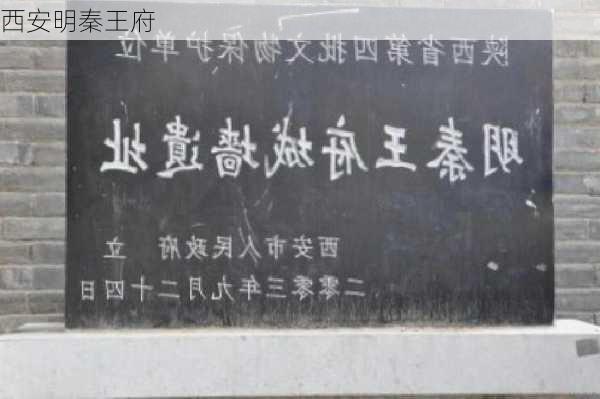 西安明秦王府
陕西省第四批文物保护单位
明秦王府城墙遺址
西安市人民政府 立
二零零三年九月二十四日